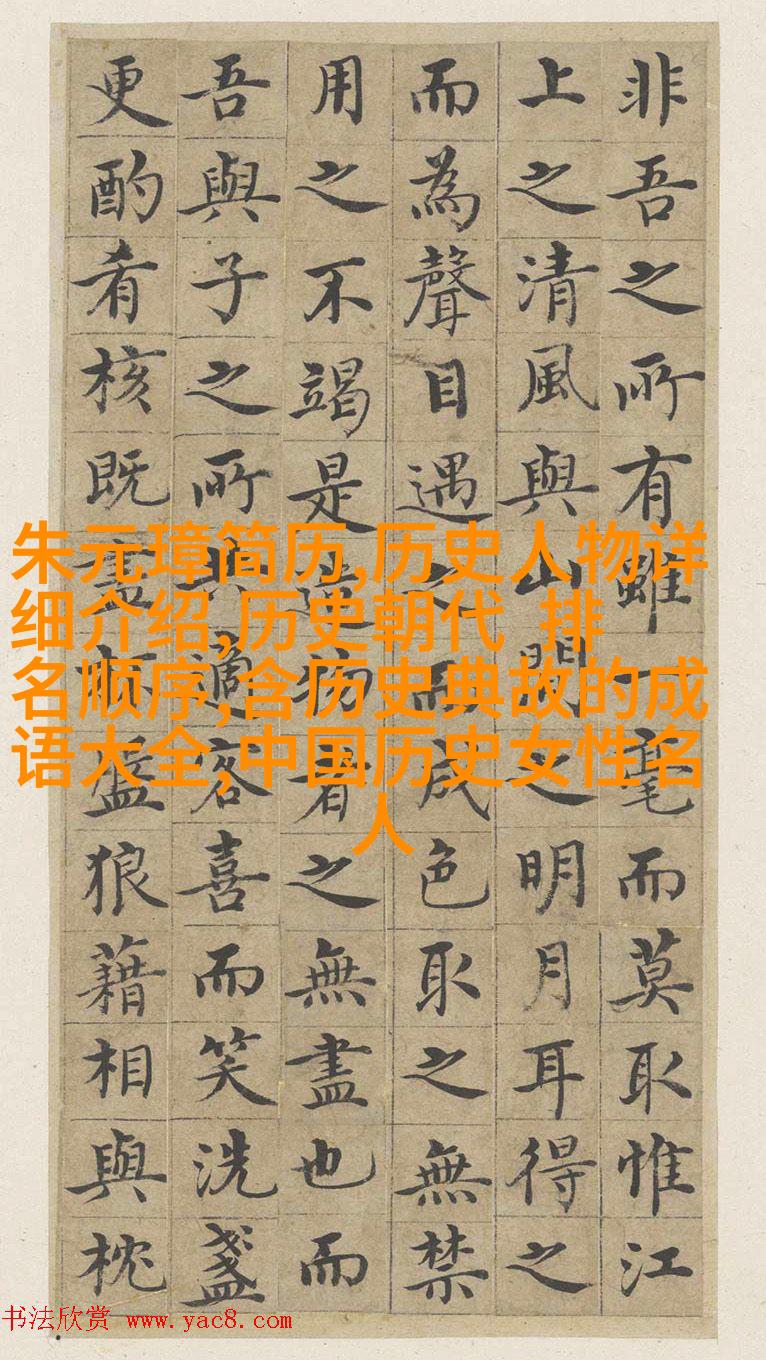 非吾之所有雖一毫而莫取惟江
上之清風與山間之明月耳得之
而為聲目遇之而成色取之無禁
用之不竭是造物者之無盡也而
吾與子之所共適客喜而笑洗盞
更酌肴核既盡杯盤狼藉相與枕
朱元璋简历,历史人物详
细介绍,历史朝代 排
名顺序,含历史典故的成
语大全,中国历史女性名
人
书法欣赏 www.yac8.com